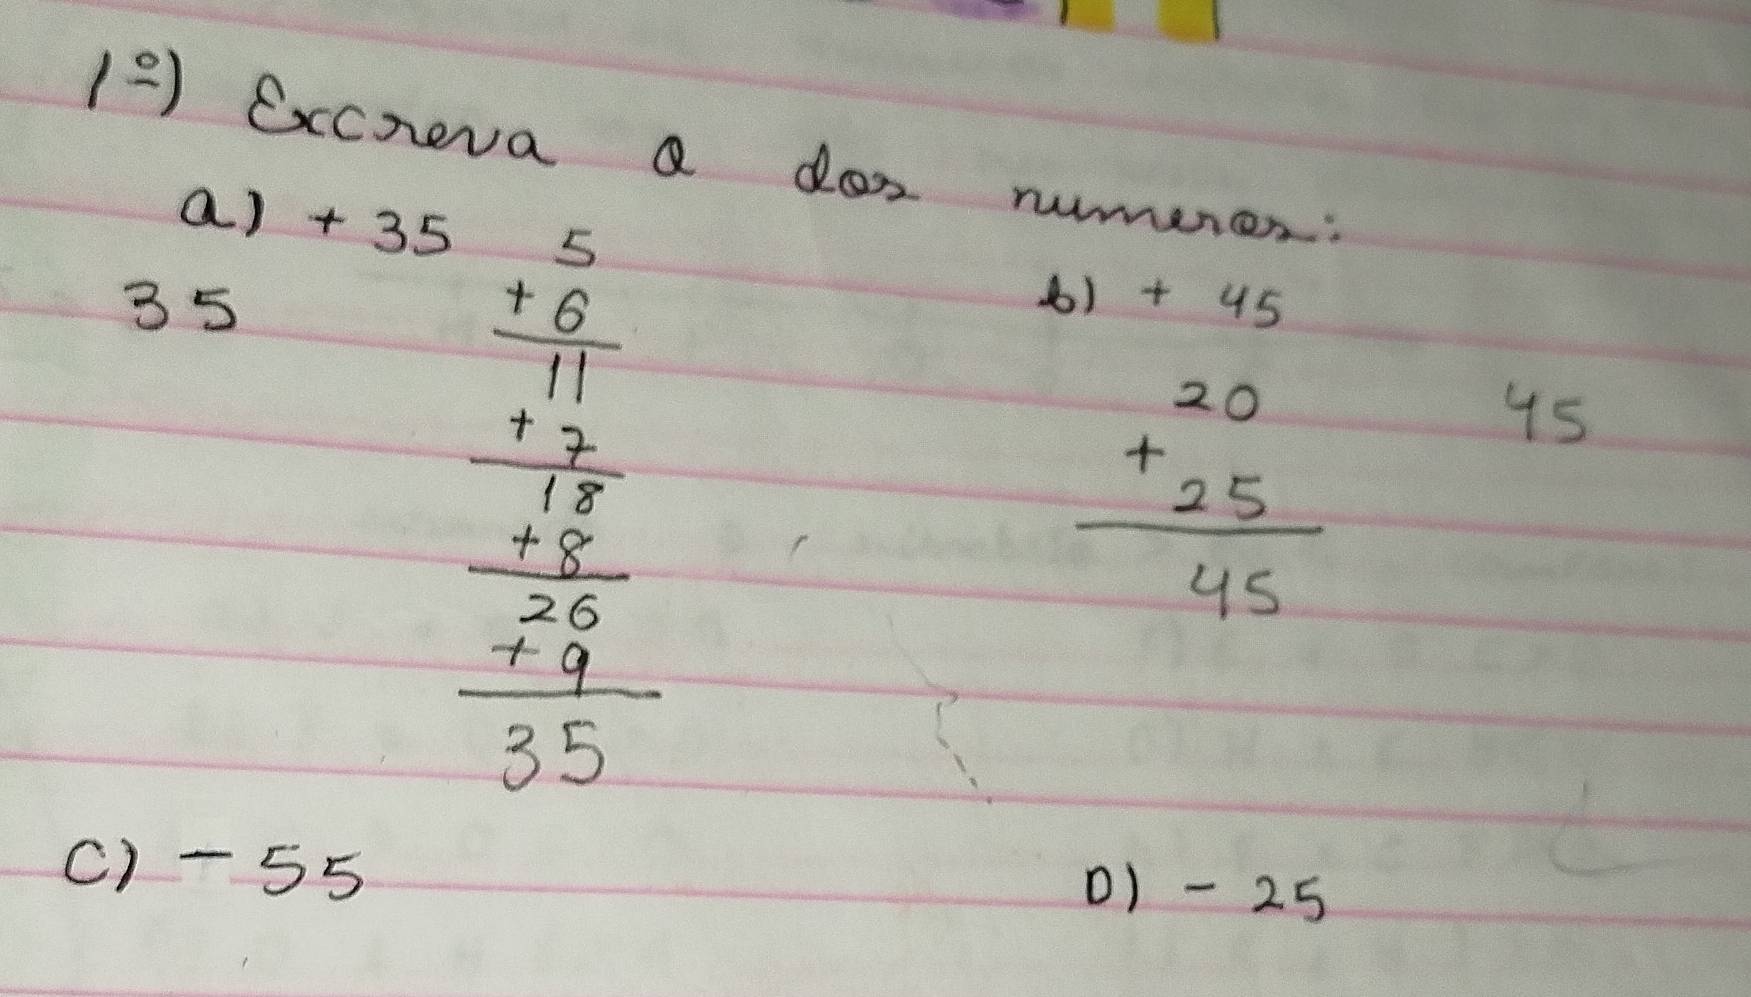 1º) Escreva a dos numeros:
a) + 35
35
5
+ 6
11
+ 7
18
+ 8
26
+ 9
35
b) + 45
20
+ 25
45
45
C) - 55
D) - 25